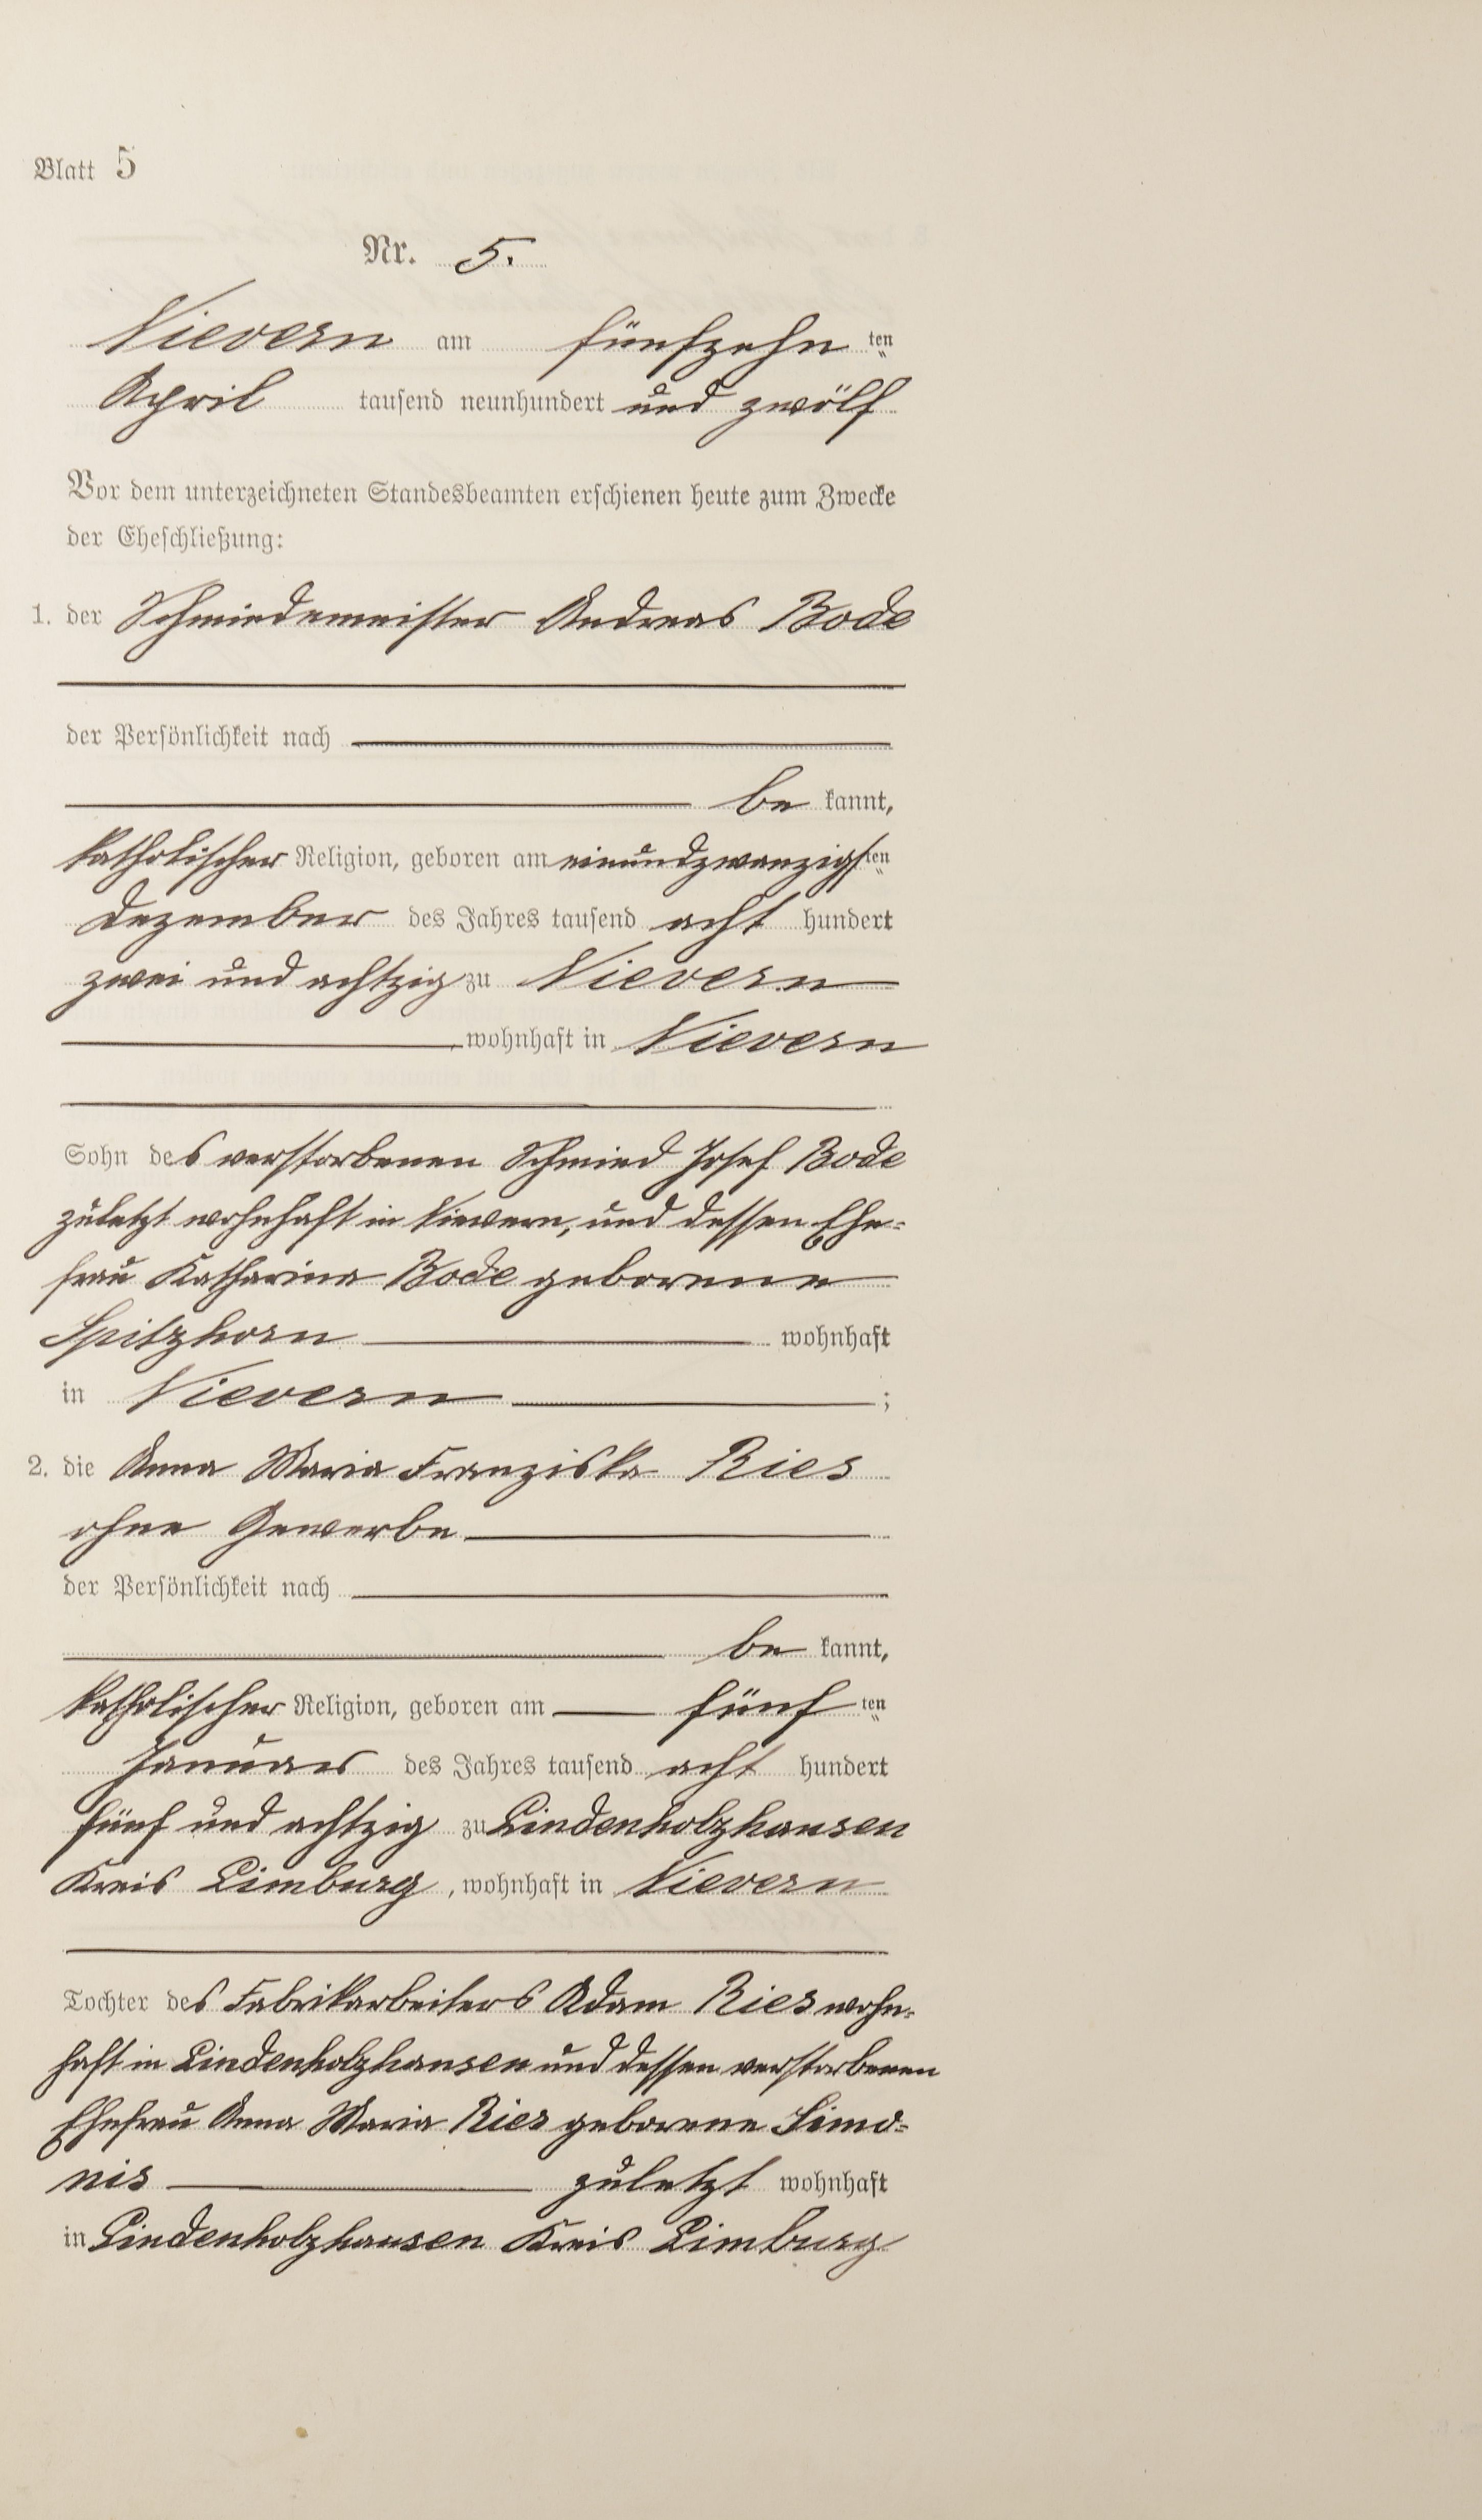 Blatt 5
Nr. 5.
Nievern am fünfzehn ten
April tausend neunhundert und zwölf
Vor dem unterzeichneten Standesbeamten erschienen heute zum Zwecke
der Eheschließung:
1. der Schmiedemeister Andreas Bode
der Persönlichkeit nach
be kannt,
katholischer Religion, geboren am einundzwanzigsten
Dezember des Jahres tausend acht hundert
zwei und achtzig zu Nievern
wohnhaft in Nievern
Sohn des verstorbenen Schmied Josef Bode
zuletzt wohnhaft in Nievern, und dessen Ehe-
frau Katharina Bode geborene
Spitzhorn wohnhaft
in Nievern ;
2. die Anna Maria Franziska Ries
ohne Gewerbe
der Persönlichkeit nach
be kannt,
katholischer Religion, geboren am fünf ten
Januar des Jahres tausend acht hundert
fünf und achtzig zu Lindenholzhausen
Kreis Limburg, wohnhaft in Nievern
Tochter des Fabrikarbeiters Adam Ries wohn-
haft in Lindenholzhausen und dessen verstorbenen
Ehefrau Anna Maria Ries geborene Simo-
nis zuletzt wohnhaft
in Lindenholzhausen Kreis Limburg